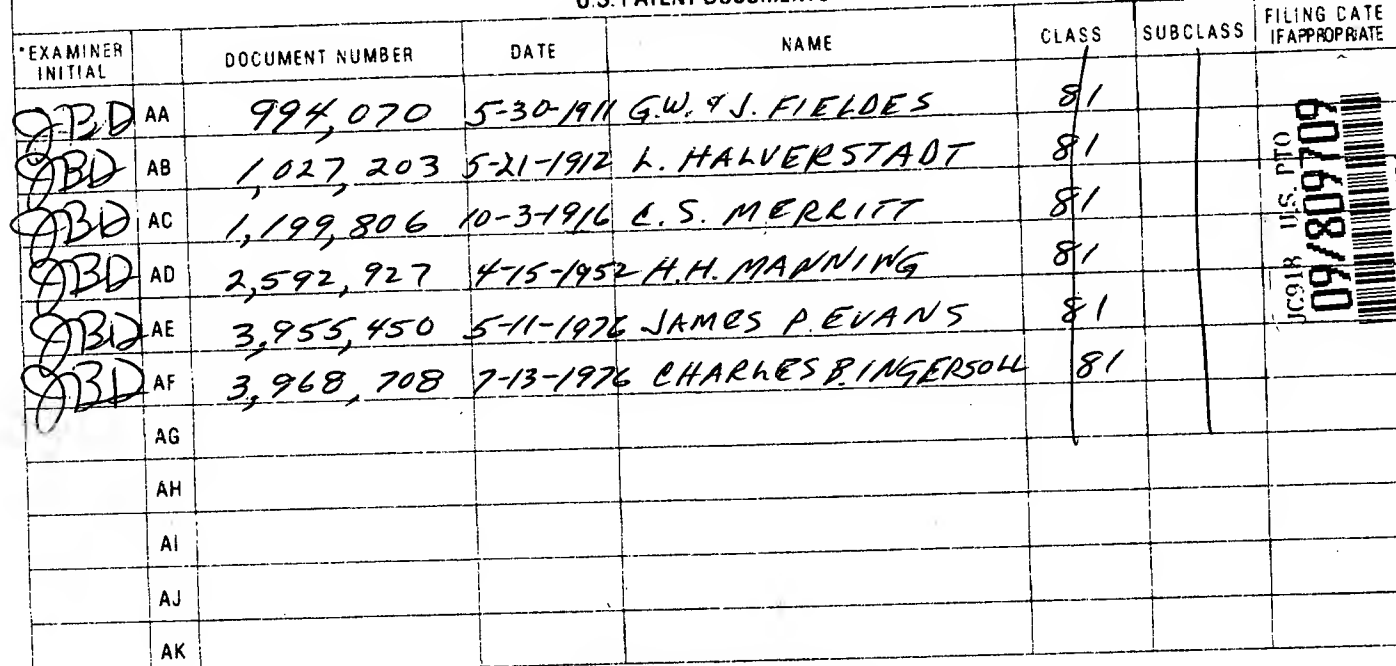 U.S. PATENT DOCUMENTS
*EXAMINER INITIAL DOCUMENT NUMBER DATE NAME CLASS SUBCLASS FILING DATE IF APPROPRIATE
JBD AA 994,070 5-30-1911 G.W. & J. FIELDES 81
JBD AB 1,027,203 5-21-1912 L. HALVERSTADT 81
JBD AC 1,199,806 10-3-1916 C.S. MERRITT 81
JBD AD 2,592,927 4-15-1952 H.H. MANNING 81
JBD AE 3,955,450 5-11-1976 JAMES P. EVANS 81
JBD AF 3,968,708 7-13-1976 CHARLES B. INGERSOLL 81
AG
AH
AI
AJ
AK
JC918 U.S. PTO
09/809709